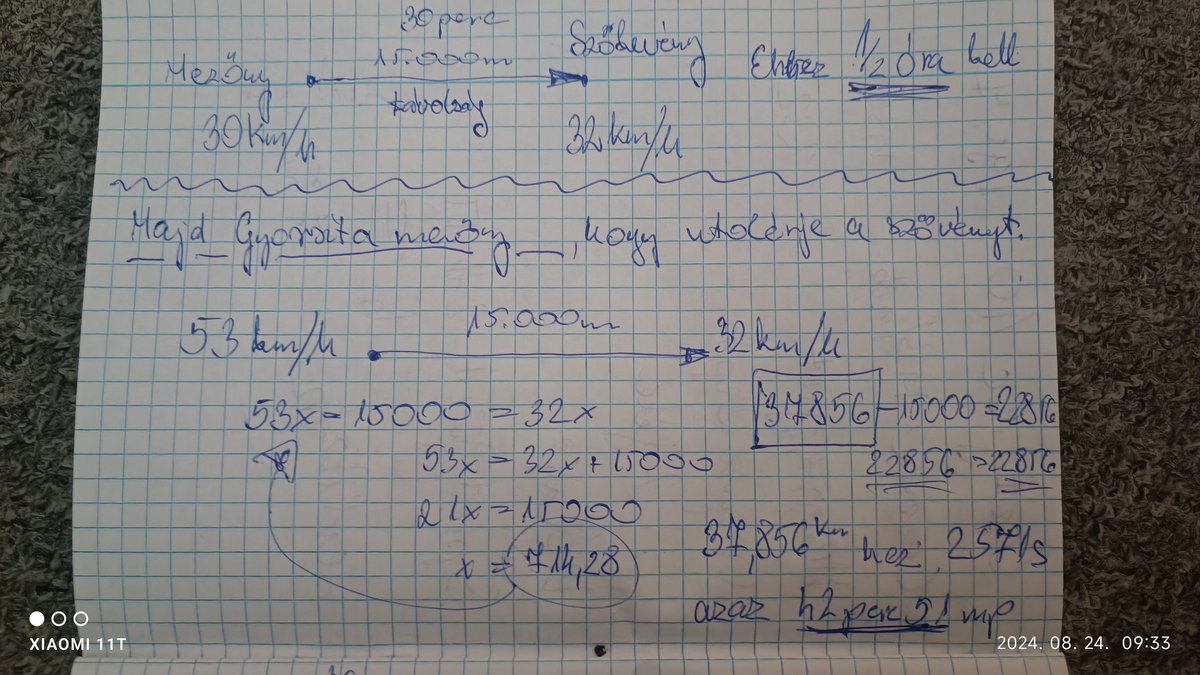 30 perc
15.000m
Mezőny Szökevény Ehhez 1/2 óra kell
távolság
30 Km/h 32 km/h
Majd Gyorsíta mezőny , hogy utolérje a szökevényt.
53 km/h 15.000m 32 km/h
53x - 15000 = 32x 37856 - 15000 = 22856
53x = 32x + 15000 22856 = 22856
21x = 15000
x = 714,28 37,856 Km hez 2571 s
azaz 42 perc 51 mp
XIAOMI 11T
2024. 08. 24. 09:33